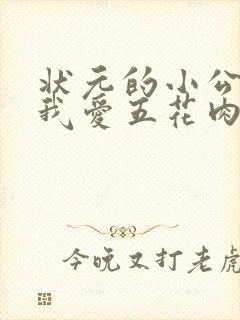 状元的小公
我爱五花肉
今晚又打老虎